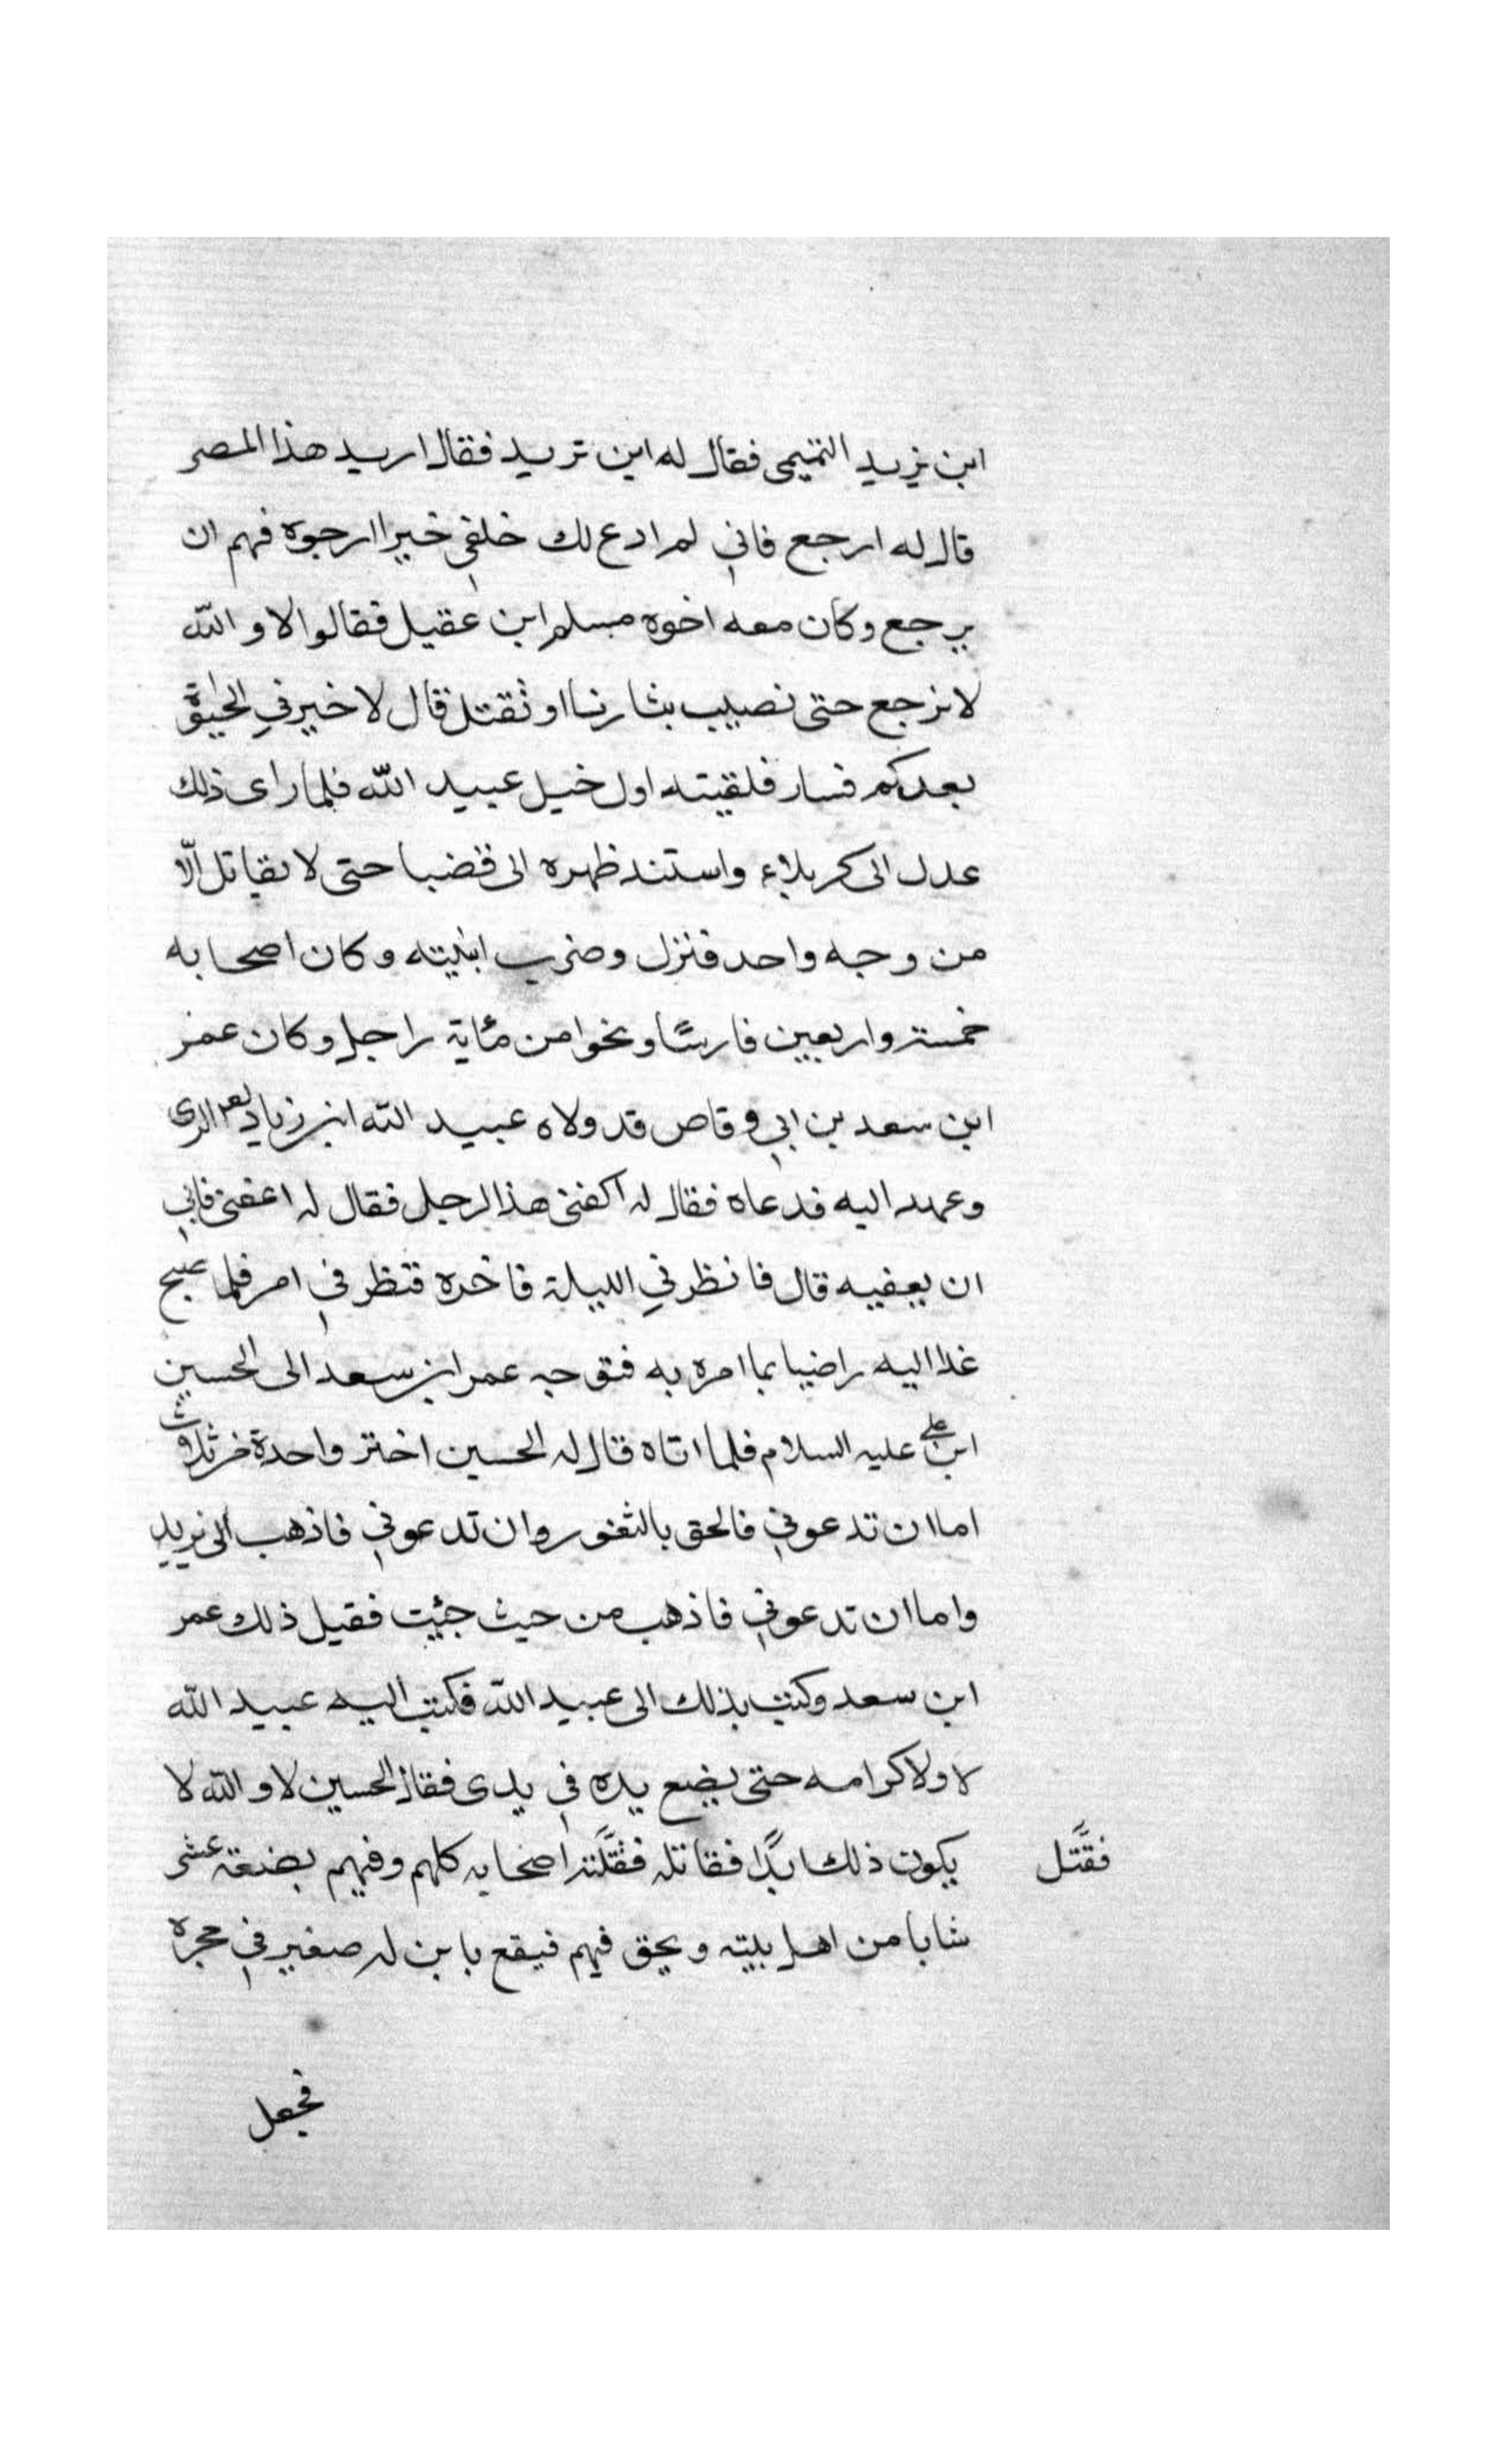 ابن يزيد التميمى فقال له اين تريد فقال اريد هذا المصر
قال له ارجع فانى لم ادع لك خلفى خيرا ارجوه فهم ان
يرجع وكان معه اخوه مسلم ابن عقيل فقالوا لا والله
لا نرجع حتى نصيب بثارنا او نقتل قال لا خير في الحيوة
بعدكم فسار فلقيته اول خيل عبيد الله فلما راى ذلك
عدل الى كربلاء واستند ظهره الى قضبا حتى لا يقاتل الّا
من وجه واحد فنزل وضرب ابنيته وكان اصحابه
خمسة واربعين فارسًا ونحوا من مئاية راجل وكان عمر
ابن سعد بن ابى وقاص قد ولاه عبيد الله ابن زياد الرى
وعهد اليه فدعاه فقال له اكفنى هذا لرجل فقال له اعفنى فابى
ان يعفيه قال فانظرني الليلة فاخره فنظر في امر فلما صبح
غدا اليه راضيا بما امره به فتوجه عمر ابن سعد الى الحسين
ابن على عليه السلام فلما اتاه قال له الحسين اختر واحدة
اما ان تدعونى فالحق بالثغور وان تدعونى فاذهب الى يزيد
واما ان تدعونى فاذهب من حيث جئيت فقيل ذلك عمر
ابن سعد وكتب بذلك الى عبيد الله فكتب اليه عبيد الله
لا ولا كرامه حتى يضع يده في يدى فقال الحسين لا والله لا
يكون ذلك ابدًا فقاتله فقتّلند اصحابه كلهم وفيهم بضعة عشر
فقتّل
شابا من اهل بيته ويحق فيهم فيقع بابن له صغير في حجره
فجعل